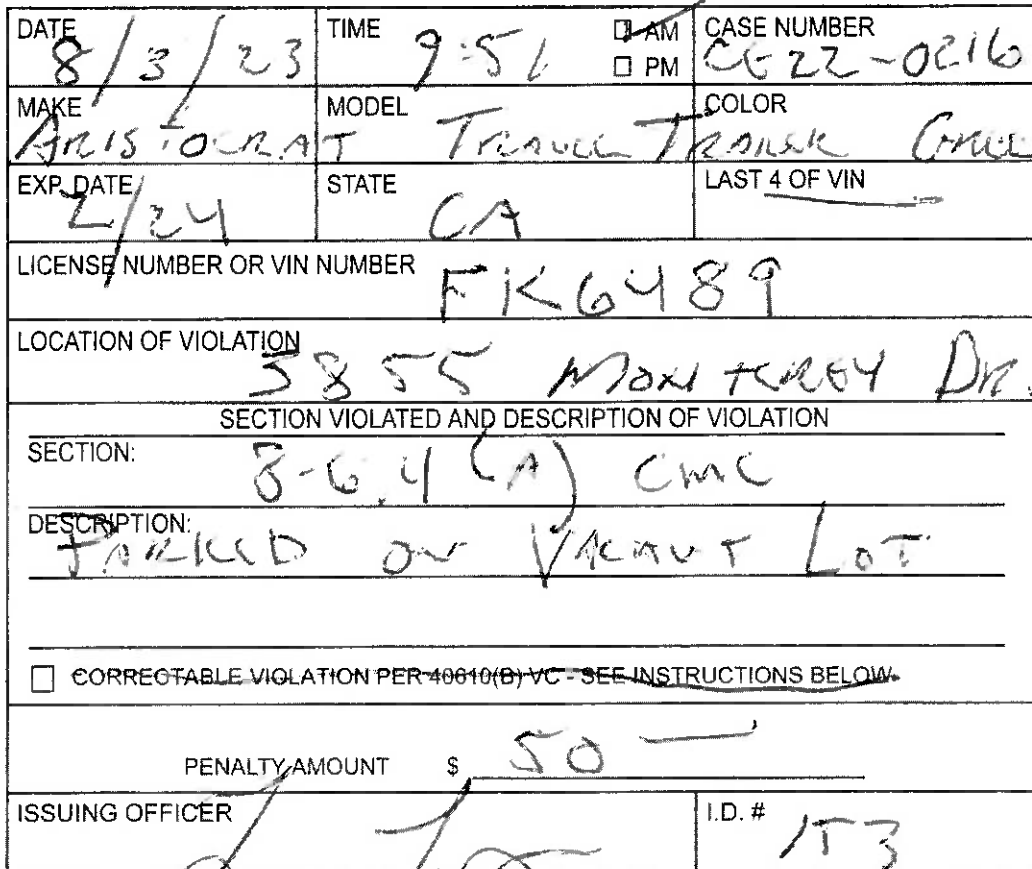 DATE TIME ☑ AM CASE NUMBER
8/3/23 9:51 ☐ PM CE22-0216
MAKE MODEL COLOR
ARISTOCRAT TRAVEL TRAILER
EXP. DATE STATE LAST 4 OF VIN
2/24 CA
LICENSE NUMBER OR VIN NUMBER FK6489
LOCATION OF VIOLATION
5855 MONTEREY DR.
SECTION VIOLATED AND DESCRIPTION OF VIOLATION
SECTION: 8-6.4 (A) CMC
DESCRIPTION:
PARKED ON VACANT LOT
☐ CORRECTABLE VIOLATION PER 40610(B) VC - SEE INSTRUCTIONS BELOW
PENALTY AMOUNT $ 50
ISSUING OFFICER I.D. # 153